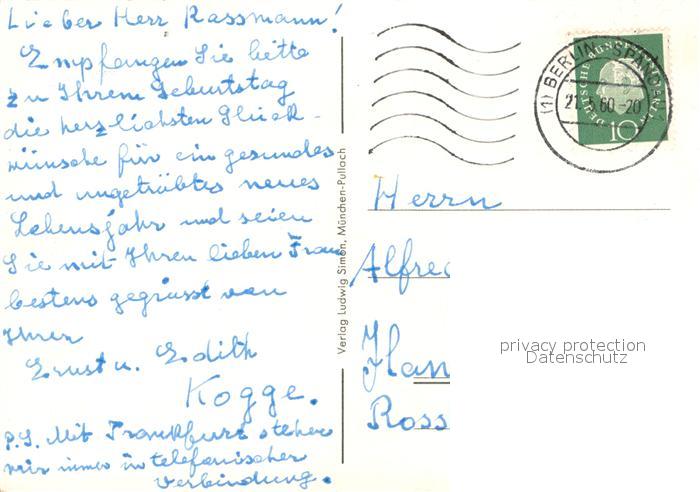 Lieber Herr Rassmann!
Empfangen Sie bitte
zu Ihrem Geburtstag
die herzlichsten Glück-
wünsche für ein gesundes
und ungetrübtes neues
Lebensjahr und seien
Sie mit Ihren lieben Frau
bestens gegrüsst von
Ihren
Ernst u. Edith
Kogge.
P.S. Mit Frankfurt stehen
wir immer in telefonischer
Verbindung.
Verlag Ludwig Simon, München-Pullach
(1) BERLIN-SPANDAU
21.5.60-20
DEUTSCHE BUNDESPOST
10
Herrn
Alfred
Han
Ross
privacy protection
Datenschutz